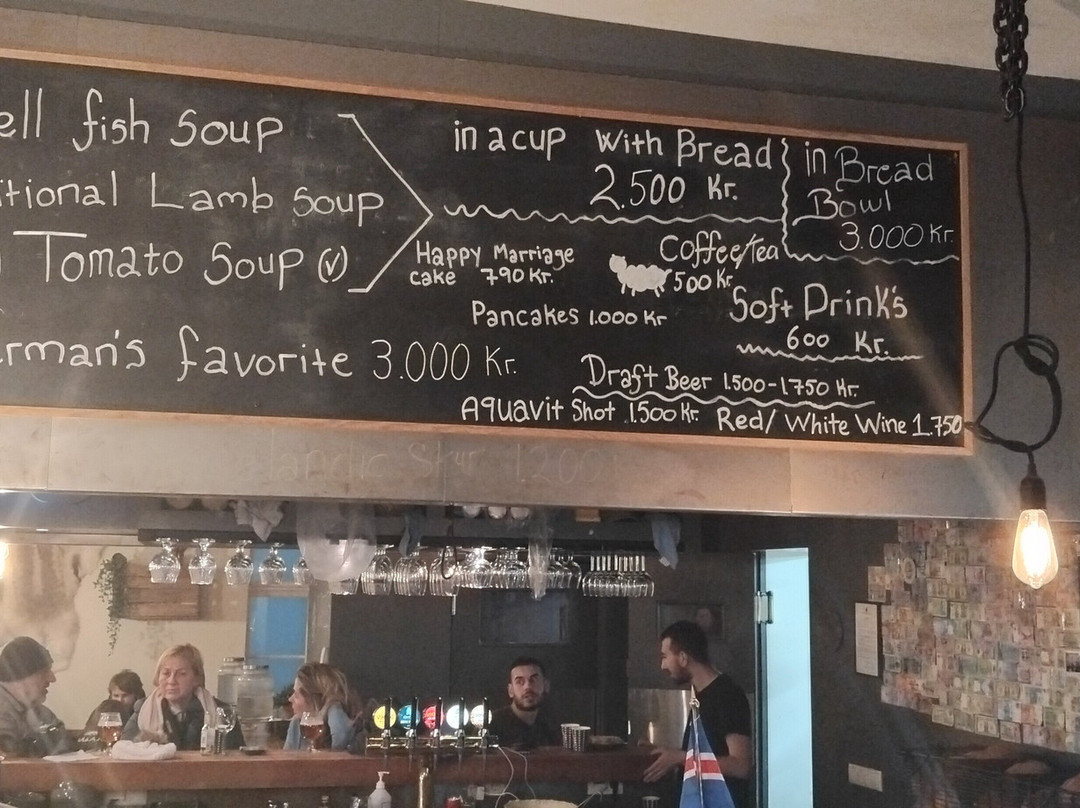 ell fish Soup
itional Lamb Soup
Tomato Soup (v)
rman's favorite 3.000 Kr.
in a cup With Bread
2.500 Kr.
in Bread
Bowl
3.000 Kr.
Happy Marriage
cake 790 Kr.
Coffee/tea
500 Kr.
Pancakes 1.000 Kr
Soft Drink's
600 Kr.
Draft Beer 1.500-1.750 Kr.
Aquavit Shot 1.500 Kr.
Red/White Wine 1.750